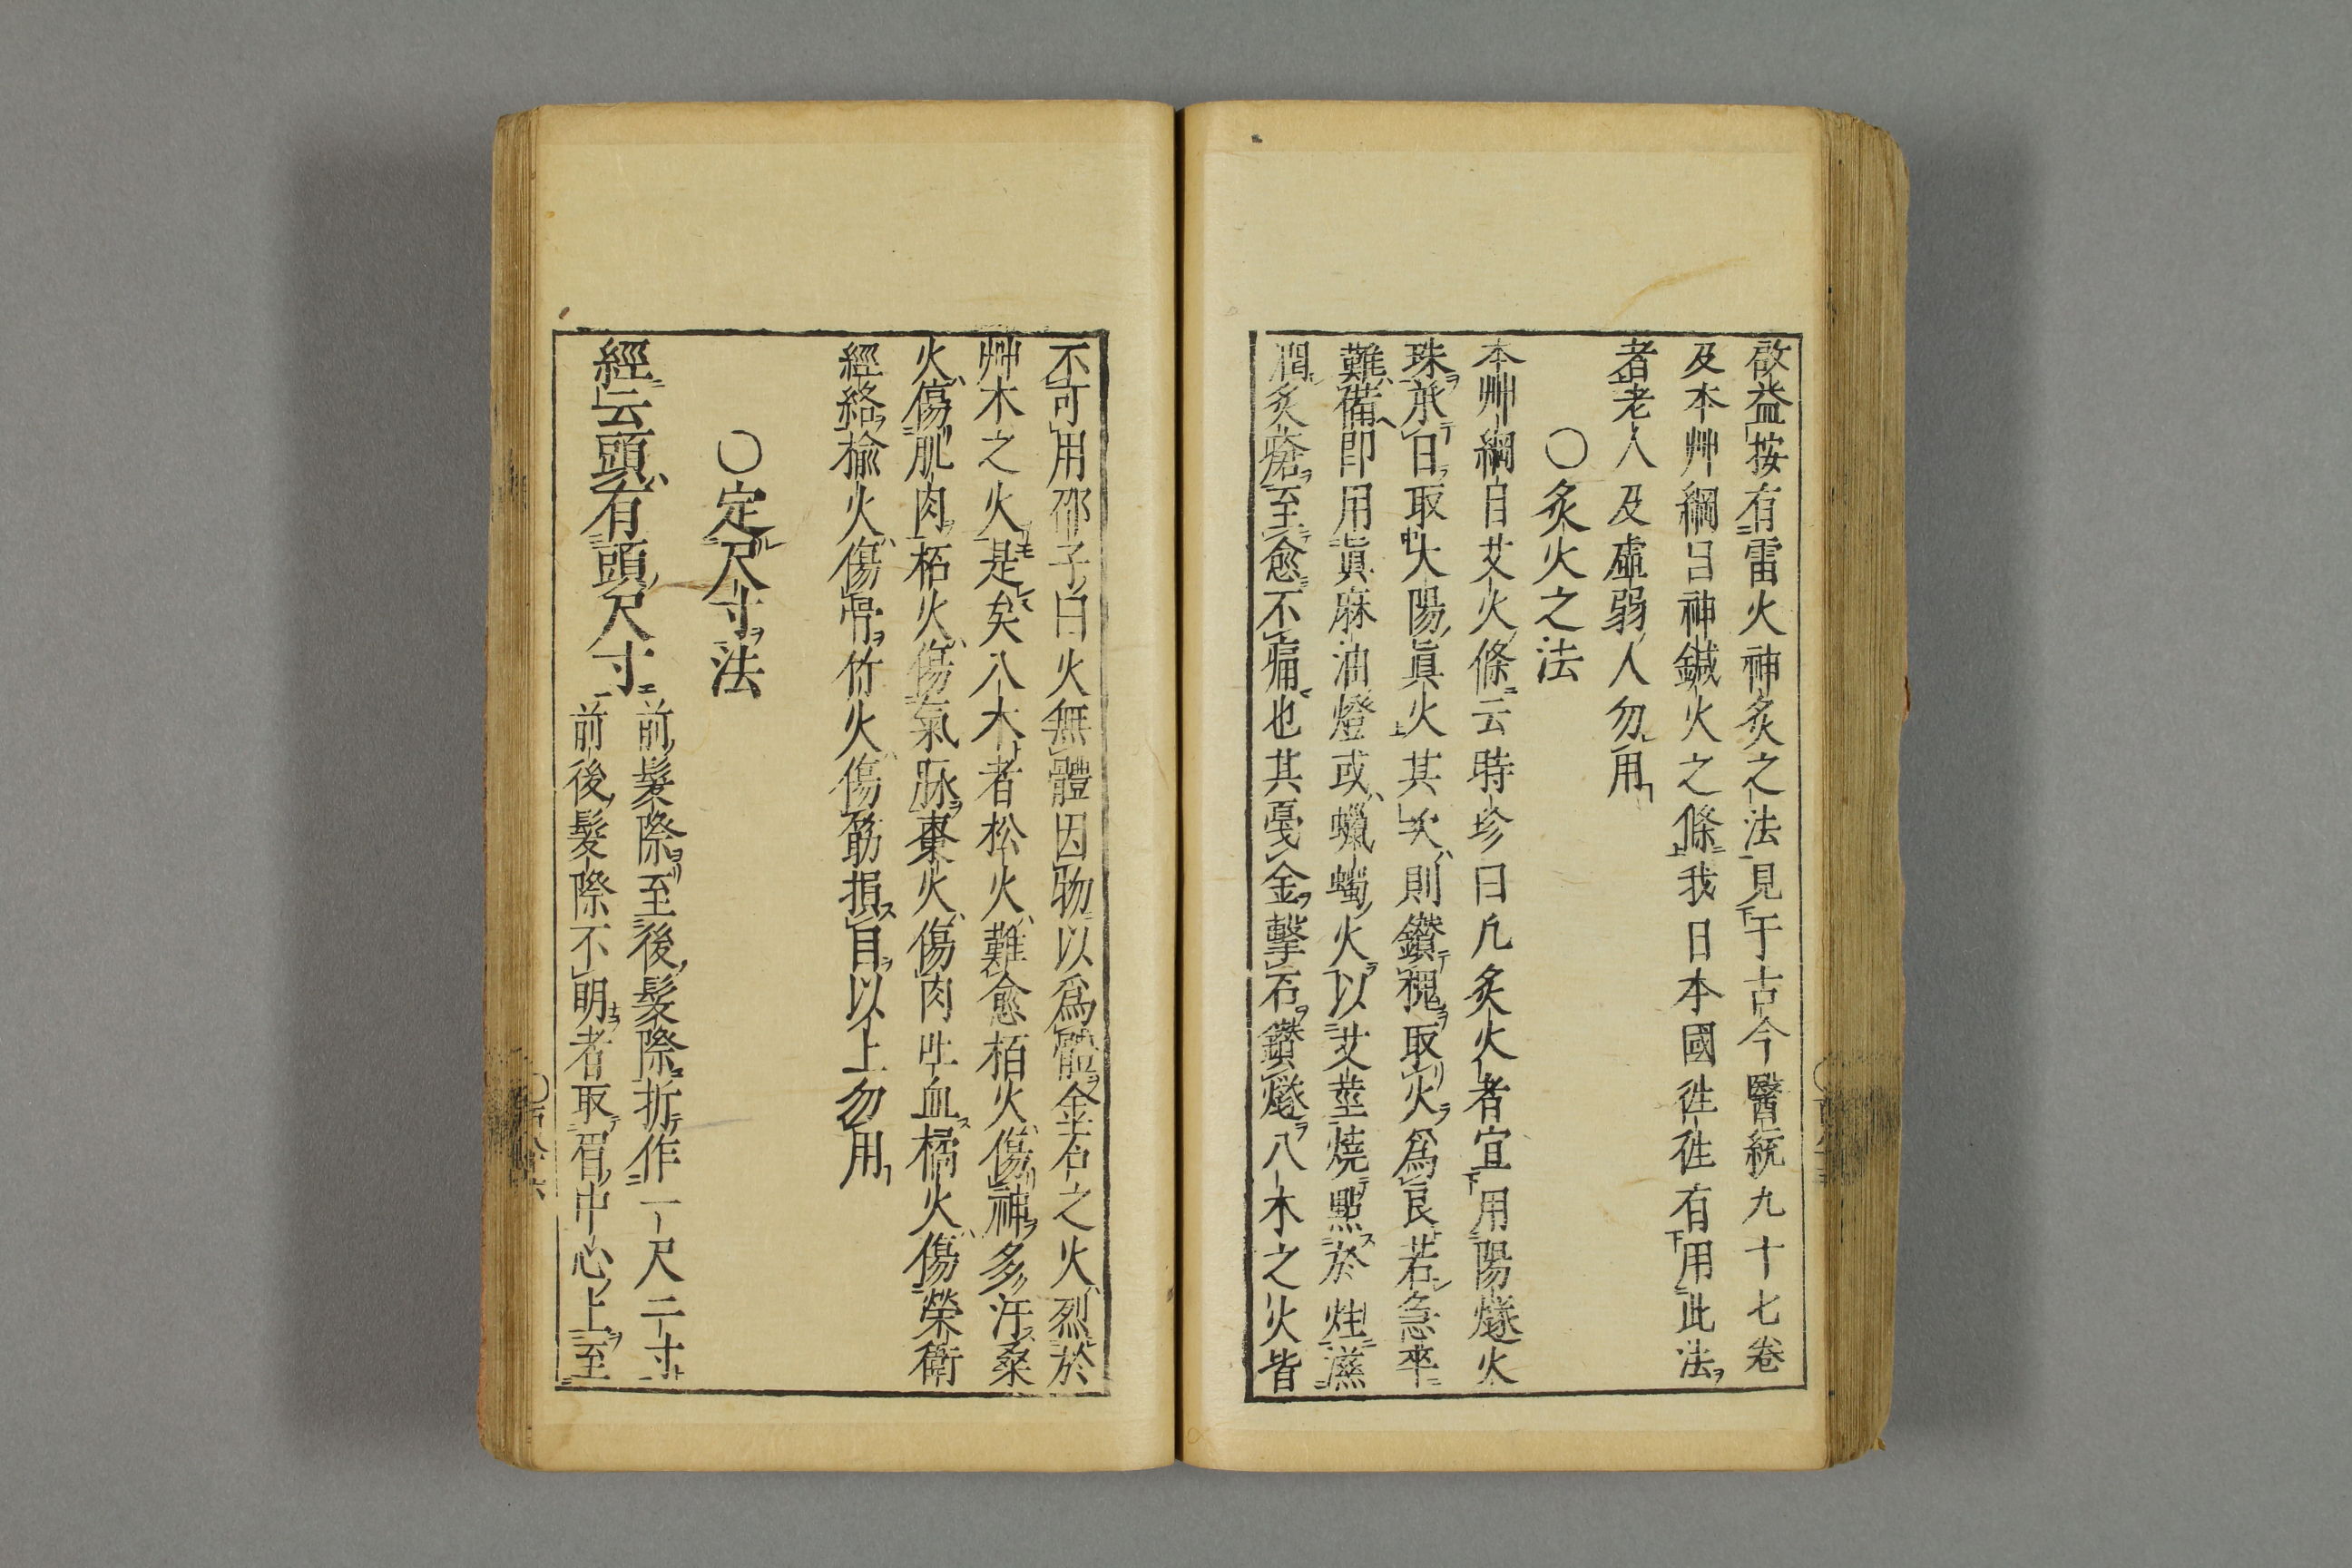 啟益按有雷火神灸之法見于古今醫統九十七卷
及本艸綱目神鍼火之條我日本國徃徃有用此法
者老人及虛弱人勿用
○灸火之法
本艸綱目艾火條云時珍曰凡灸火者宜用陽燧火
珠承日取大陽眞火其次則鑽槐取火爲良若急卒
難備即用眞麻油燈或蠟蠋火以艾莖燒點於炷滋
潤灸瘡至愈不痛也其戛金擊石鑽燧八木之火皆
不可用邵子曰火無體因物以爲體金石之火烈於
艸木之火是矣八木者松火難愈栢火傷神多汗桑
火傷肌肉柘火傷氣脉棗火傷肉吐血橘火傷榮衛
經絡楡火傷骨竹火傷筋損目以上勿用
○定尺寸法
經云頭有頭尺寸
前髮際至後髮際折作一尺二寸
前後髮際不明者取眉中心上至